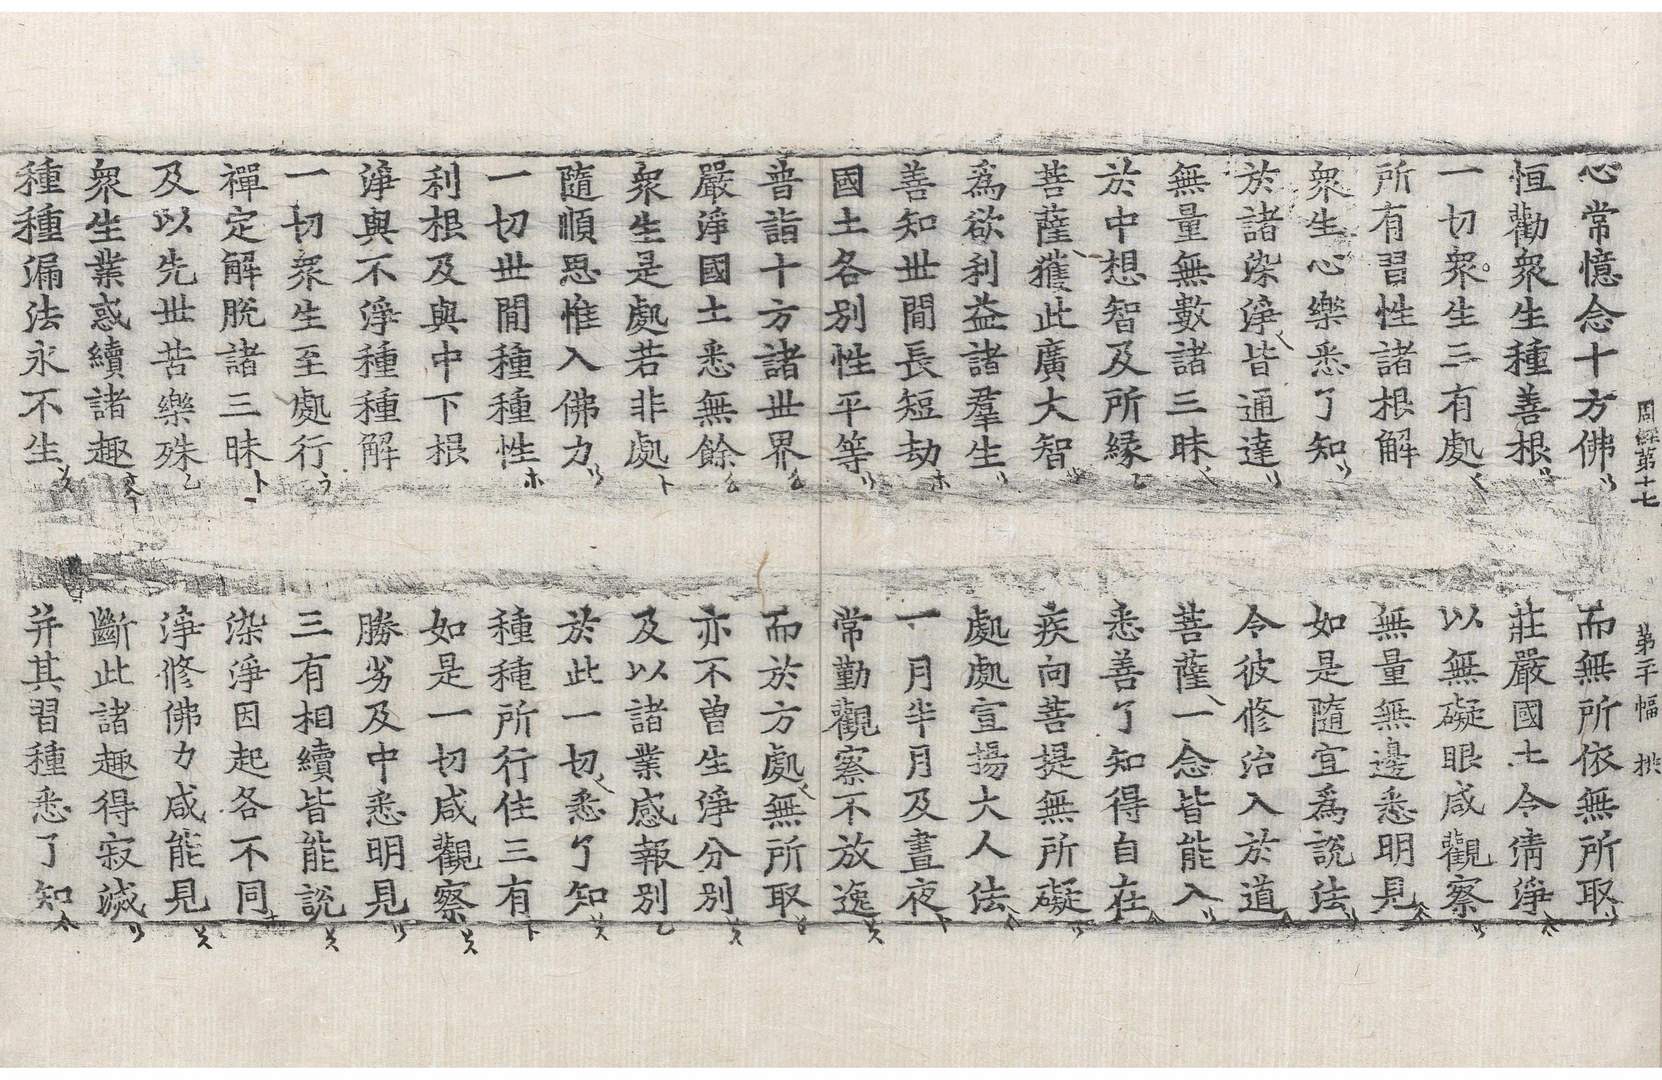 周經第十七 第 幅
心常憶念十方佛 而無所依無所取
恒勸衆生種善根 莊嚴國土令淸淨
一切衆生三有處 以無礙眼咸觀察
所有習性諸根解 無量無邊悉明見
衆生心樂悉了知 如是隨宜爲說法
於諸染淨皆通達 令彼修治入於道
無量無數諸三昧 菩薩一念皆能入
於中想智及所緣 悉善了知得自在
菩薩獲此廣大智 疾向菩提無所礙
爲欲利益諸羣生 處處宣揚大人法
善知世間長短劫 一月半月及晝夜
國土各別性平等 常勤觀察不放逸
普詣十方諸世界 而於方處無所取
嚴淨國土悉無餘 亦不曾生淨分別
衆生是處若非處 及以諸業感報別
隨順思惟入佛力 於此一切悉了知
一切世間種種性 種種所行住三有
利根及與中下根 如是一切咸觀察
淨與不淨種種解 勝劣及中悉明見
一切衆生至處行 三有相續皆能說
禪定解脫諸三昧 染淨因起各不同
及以先世苦樂殊 淨修佛力咸能見
衆生業惑續諸趣 斷此諸趣得寂滅
種種漏法永不生 并其習種悉了知